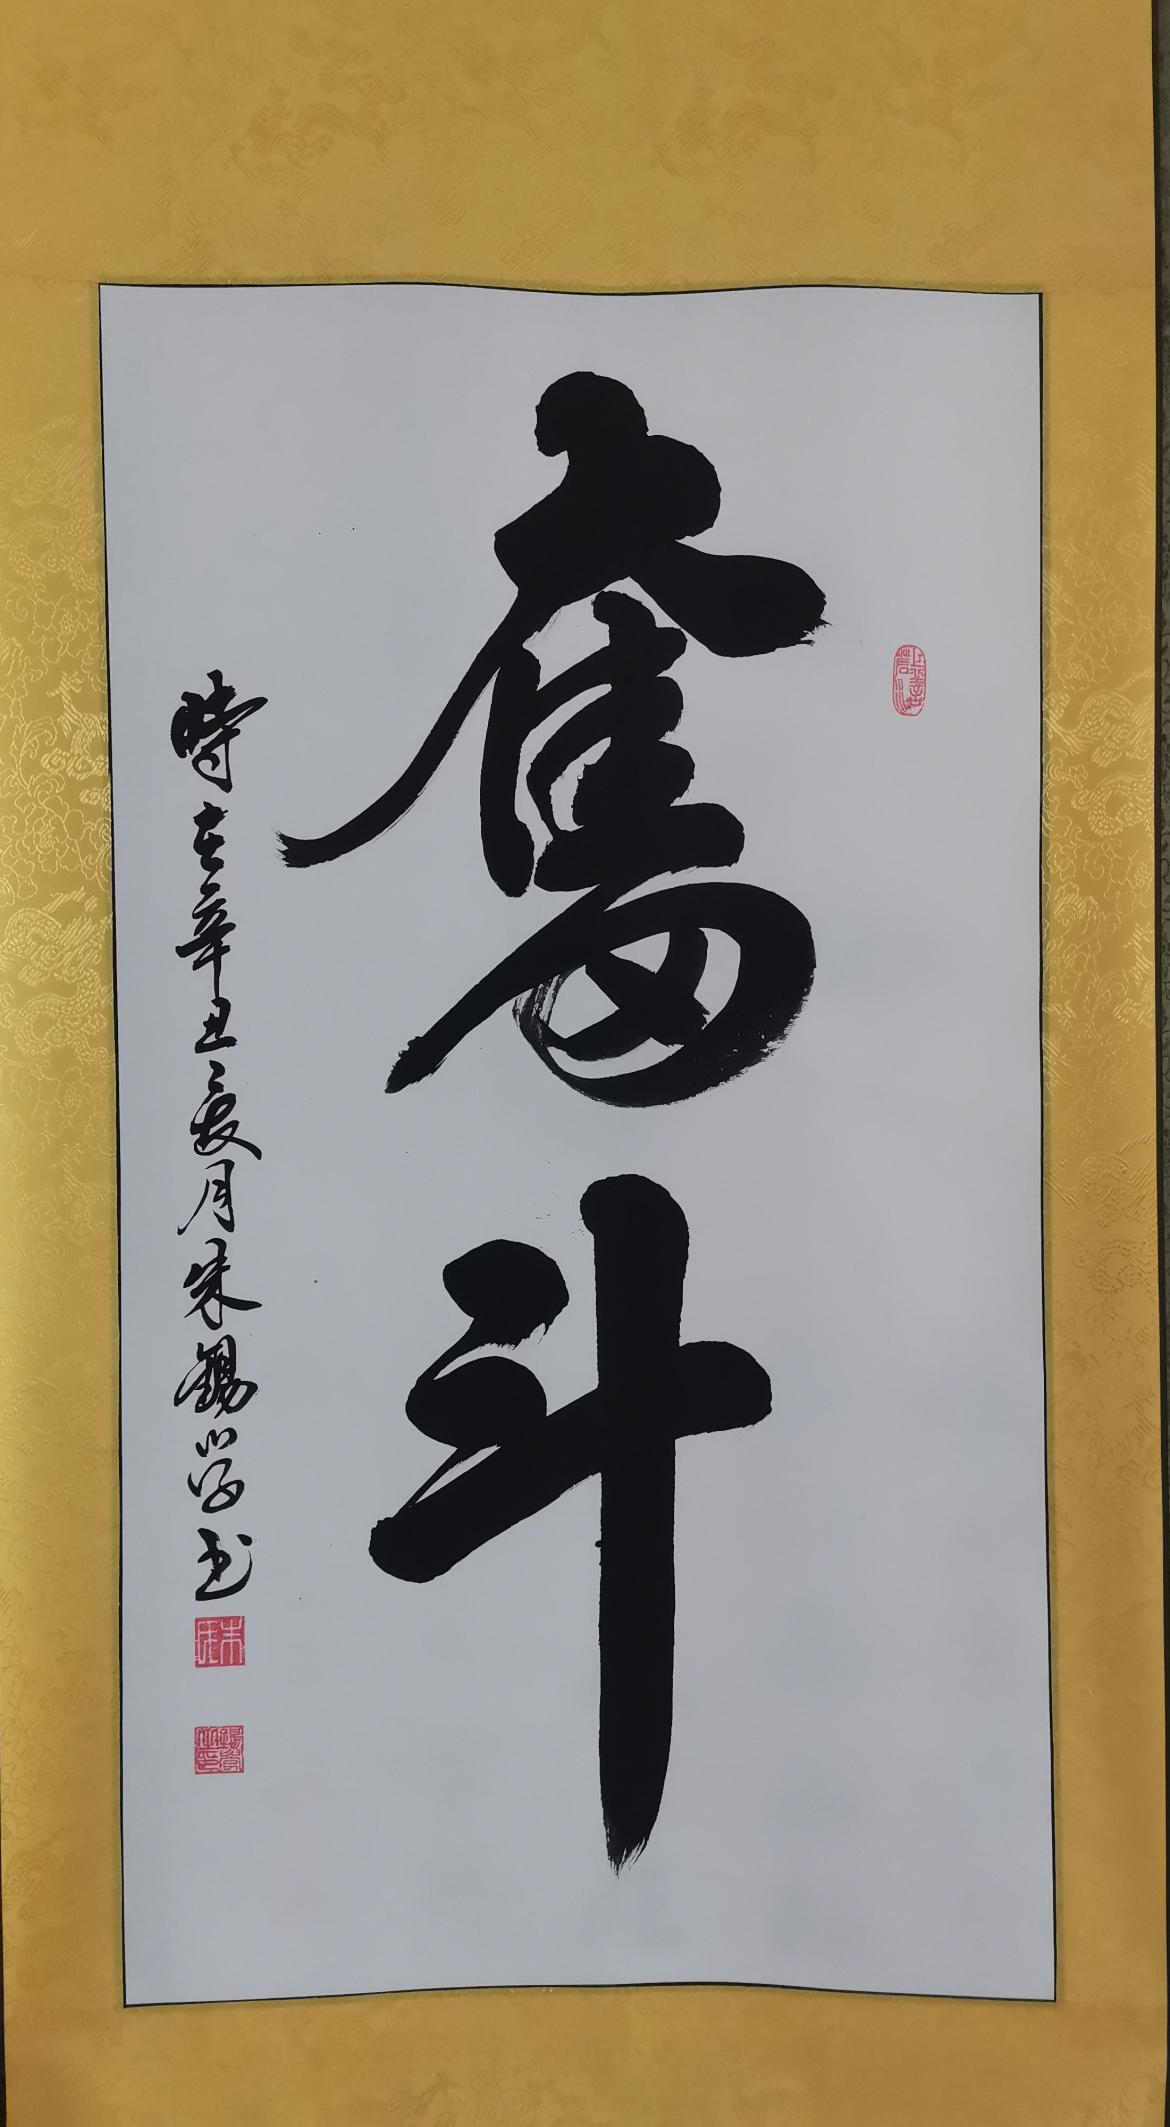 奮斗
時在辛丑之夏月朱錫常书
朱氏